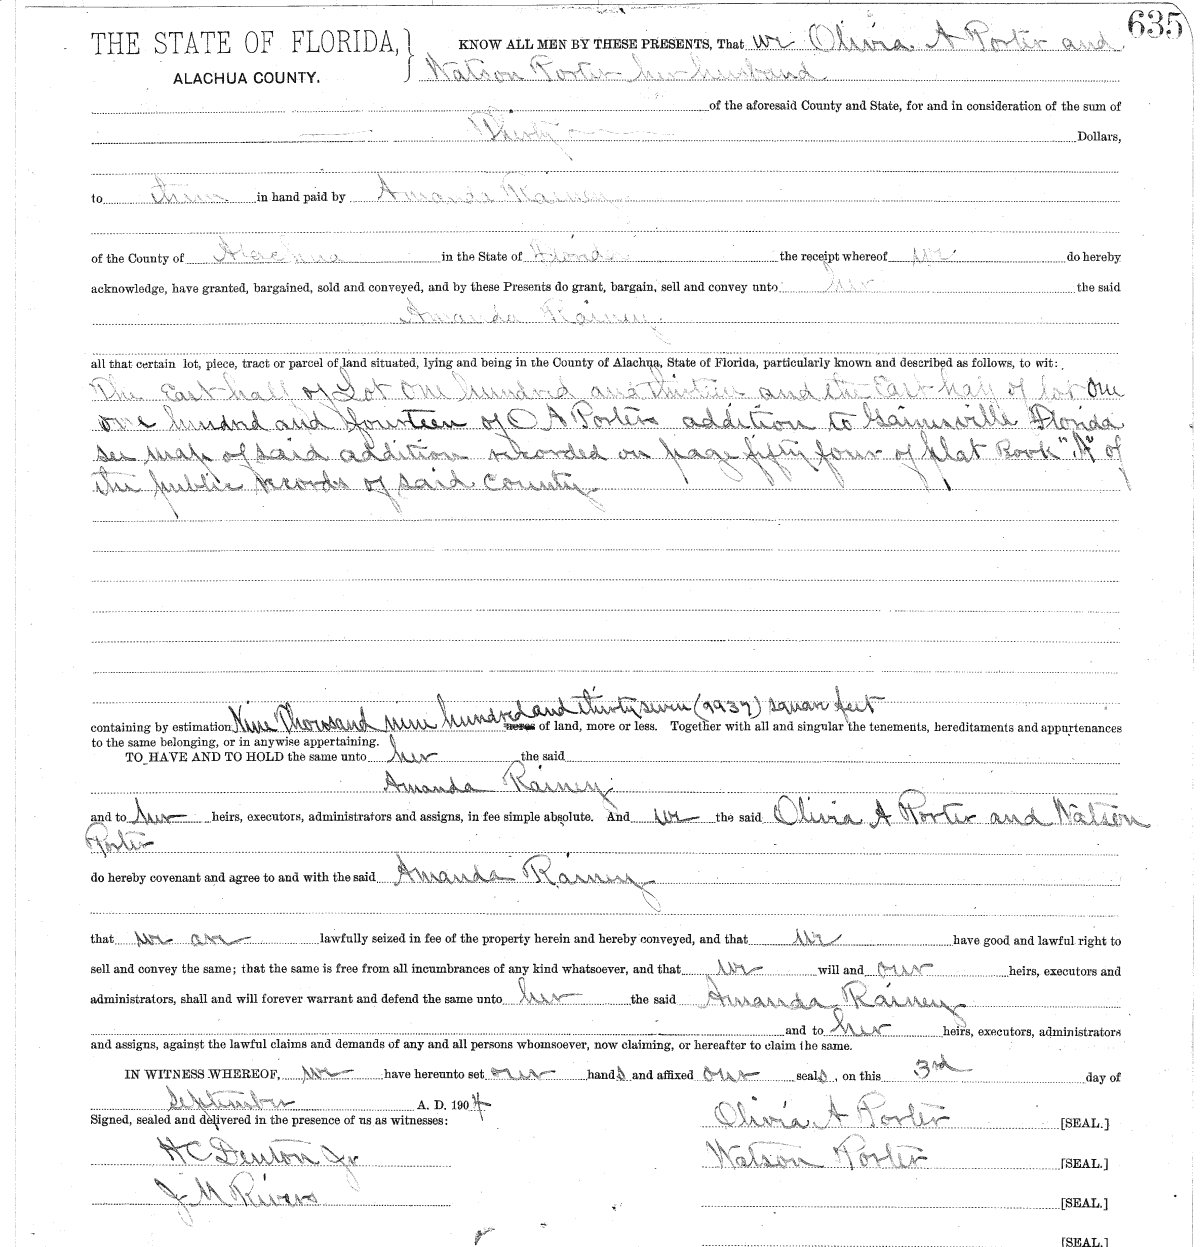 635
THE STATE OF FLORIDA, } KNOW ALL MEN BY THESE PRESENTS, That we Olivia A Porter and
ALACHUA COUNTY. Watson Porter her husband
of the aforesaid County and State, for and in consideration of the sum of
Thirty Dollars,
to them in hand paid by Amanda Rainey
of the County of Alachua in the State of Florida the receipt whereof we do hereby
acknowledge, have granted, bargained, sold and conveyed, and by these Presents do grant, bargain, sell and convey unto her the said
Amanda Rainey
all that certain lot, piece, tract or parcel of land situated, lying and being in the County of Alachua, State of Florida, particularly known and described as follows, to wit:
The East half of Lot One hundred and thirteen and the East half of lot One
one hundred and fourteen of O A Porters addition to Gainesville Florida
see map of said addition recorded on page fifty four of plat Book "A" of
the public records of said County
containing by estimation Nine Thousand nine hundred and thirty seven (9937) square feet
acres of land, more or less. Together with all and singular the tenements, hereditaments and appurtenances
to the same belonging, or in anywise appertaining.
TO HAVE AND TO HOLD the same unto her the said
Amanda Rainey
and to her heirs, executors, administrators and assigns, in fee simple absolute. And we the said Olivia A Porter and Watson
Porter
do hereby covenant and agree to and with the said Amanda Rainey
that we are lawfully seized in fee of the property herein and hereby conveyed, and that we have good and lawful right to
sell and convey the same; that the same is free from all incumbrances of any kind whatsoever, and that we will and our heirs, executors and
administrators, shall and will forever warrant and defend the same unto her the said Amanda Rainey
and to her heirs, executors, administrators
and assigns, against the lawful claims and demands of any and all persons whomsoever, now claiming, or hereafter to claim the same.
IN WITNESS WHEREOF, we have hereunto set our hands and affixed our seals, on this 3rd day of
September A. D. 1904
Signed, sealed and delivered in the presence of us as witnesses: Olivia A Porter [SEAL.]
H C Denton Jr Watson Porter [SEAL.]
J M Rivers [SEAL.]
[SEAL.]